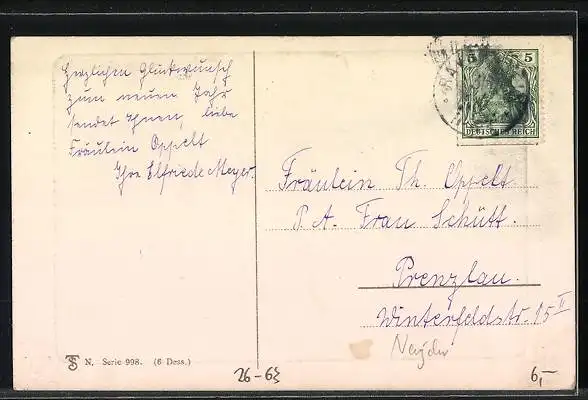 Herzlichen Glückwunsch
zum neuen Jahr
sendet Ihnen, liebe
Fräulein Oppelt
Ihre Elfriede Meyer.
5 5
DEUTSCHES REICH
Fräulein Th. Oppelt
P. A. Frau Schütt.
Prenzlau.
Winterfeldstr. 15 II
N. Serie 998. (6 Dess.)
26-63
6,-